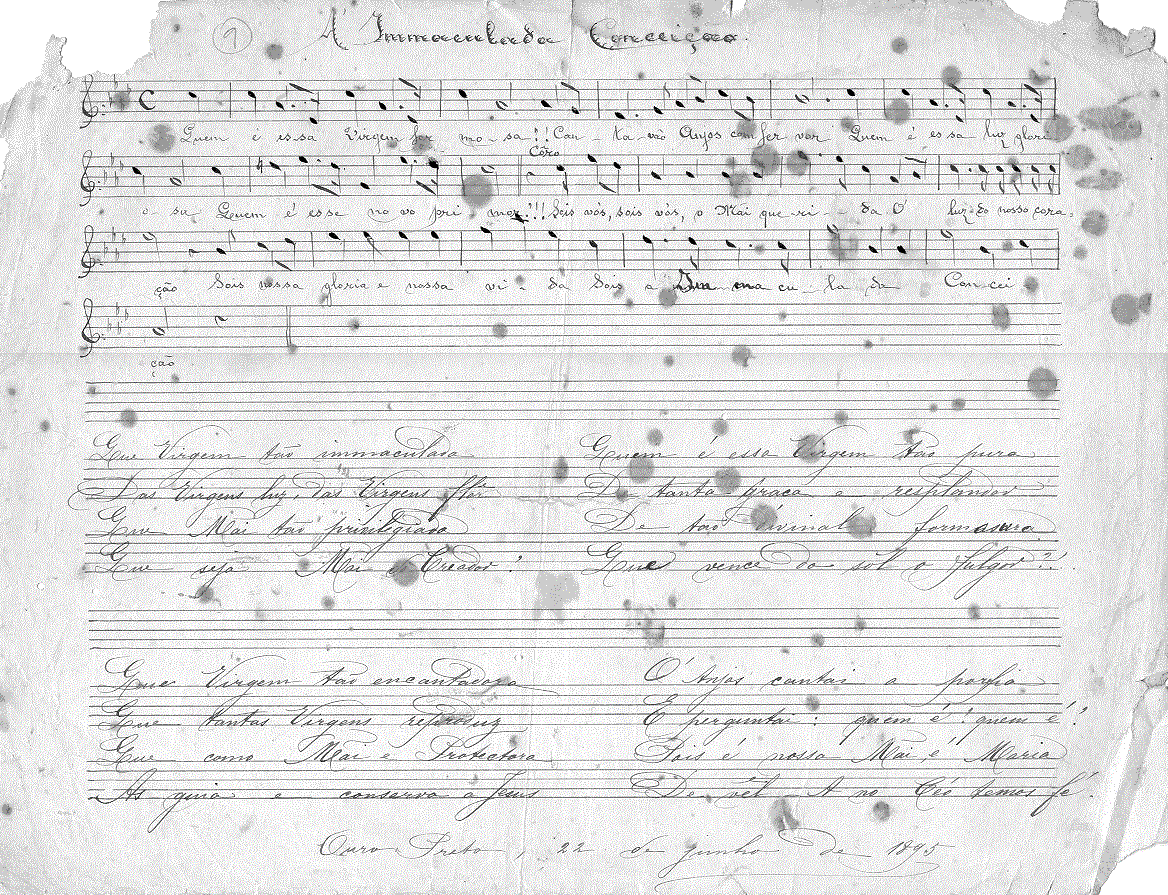 1
A' Immaculada Conceição.
Quem é essa Virgem for_mo_sa!! Can_ta_vão Anjos com fer_vor Quem é es sa luz glori
Côro
o_sa Quem é esse no vo pri_mor!!! Sois vós, sois vós, o Mai que_ri_da O' luz do nosso cora=
ção Sois nossa gloria e nossa vi_da Sois a Im_ma cu_la da Con cei
ção
Que Virgem tão immaculada
Das Virgens luz, das Virgens flôr
Que Mai tão privilegiada
Que seja Mai Creador!
Quem é essa Virgem tão pura
De tanta graça e resplandor
De tão divinal formosura
Que vence do sol o fulgor?!
Que Virgem tão encantadora
Que tantas Virgens reproduz
Que como Mai e Protectora
As guia e conserva a Jesus
O' Anjos cantai a porfia
E perguntai: quem é! quem é!
Pois é nossa Mai, é Maria
De vêl-A no Céo temos fé.
Ouro Preto, 22 de junho de 1895